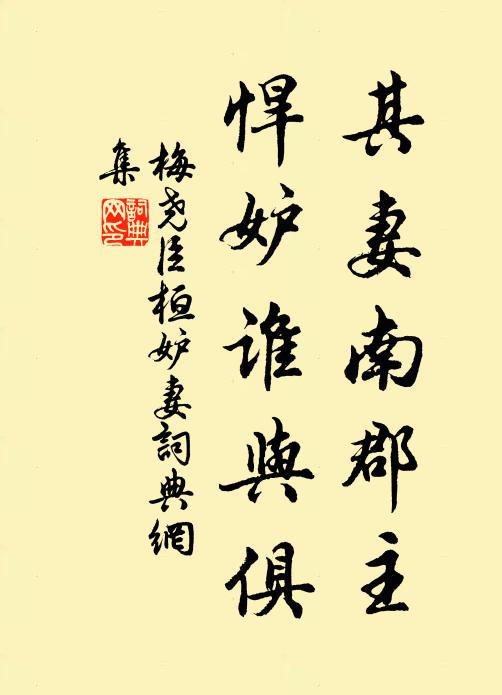 其妻南郡主
悍妒谁與俱
梅尧臣桓妒妻詞典網
集
詞典网印